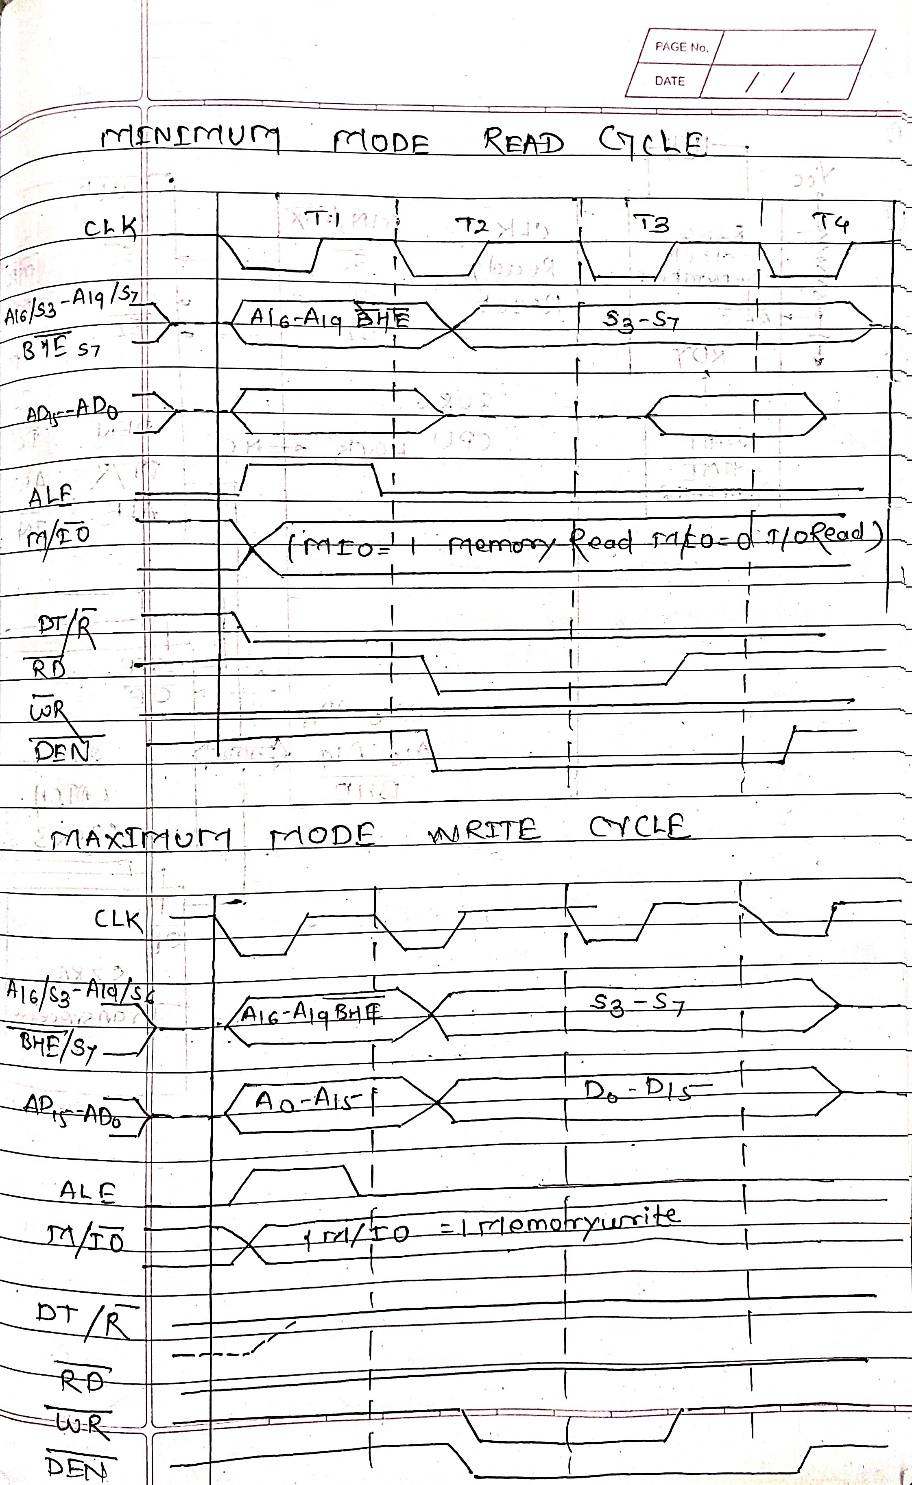 PAGE No.
DATE / /
MINIMUM MODE READ CYCLE.
T1 T2 T3 T4
CLK
A16/S3-A19/S7
A16-A19 B̅H̅E̅ S3-S7
B̅H̅E̅ S7
AD15-AD0
ALE
M/I̅O̅ (MIO=1 Memory Read M/IO=0 I/O Read)
DT/R̅
R̅D̅
W̅R̅
D̅E̅N̅
MAXIMUM MODE WRITE CYCLE
CLK
A16/S3-A19/S6
A16-A19 B̅H̅E̅ S3-S7
B̅H̅E̅/S7
AD15-AD0 A0-A15 D0-D15
ALE
M/I̅O̅ M/IO =1 Memory write
DT/R̅
R̅D̅
W̅R̅
D̅E̅N̅